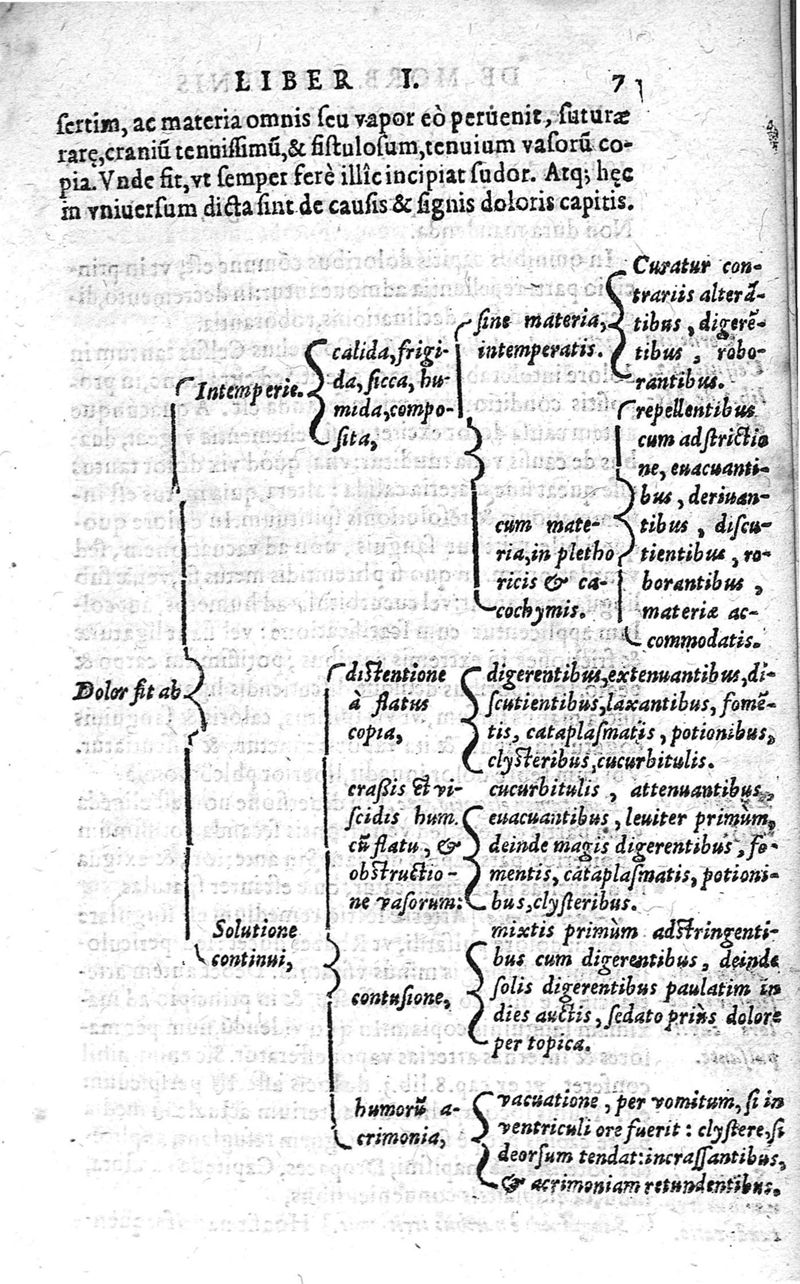 LIBER I. 7
sertim, ac materia omnis seu vapor eò peruenit, suturæ
rarę, craniũ tenuissimũ, & fistulosum, tenuium vasorũ co-
pia. Vnde fit, vt semper ferè illîc incipiat sudor. Atq; hęc
in vniuersum dicta sint de causis & signis doloris capitis.
Dolor fit ab
Intemperie.
calida, frigi-
da, sicca, hu-
mida, compo-
sita,
sine materia,
intemperatis.
Curatur con-
trariis alterā-
tibus, digerē-
tibus, robo-
rantibus.
cum mate-
ria, in pletho
ricis & ca-
cochymis.
repellentibus
cum adstrictio
ne, euacuanti-
bus, deriuan-
tibus, discu-
tientibus, ro-
borantibus,
materiæ ac-
commodatis.
Solutione
continui,
distentione
à flatus
copia,
digerentibus, extenuantibus, di-
scutientibus, laxantibus, fomē-
tis, cataplasmatis, potionibus,
clysteribus, cucurbitulis.
crassis et vi-
scidis hum.
cũ flatu, &
obstructio-
ne vasorum:
cucurbitulis, attenuantibus,
euacuantibus, leuiter primùm,
deinde magis digerentibus, fo-
mentis, cataplasmatis, potioni-
bus, clysteribus.
contusione,
mixtis primùm adstringenti-
bus cum digerentibus, deinde
solis digerentibus paulatim in
dies auctis, sedato priùs dolore
per topica.
humorũ a-
crimonia,
vacuatione, per vomitum, si in
ventriculi ore fuerit: clystere, si
deorsum tendat: incrassantibus,
& acrimoniam retundentibus.